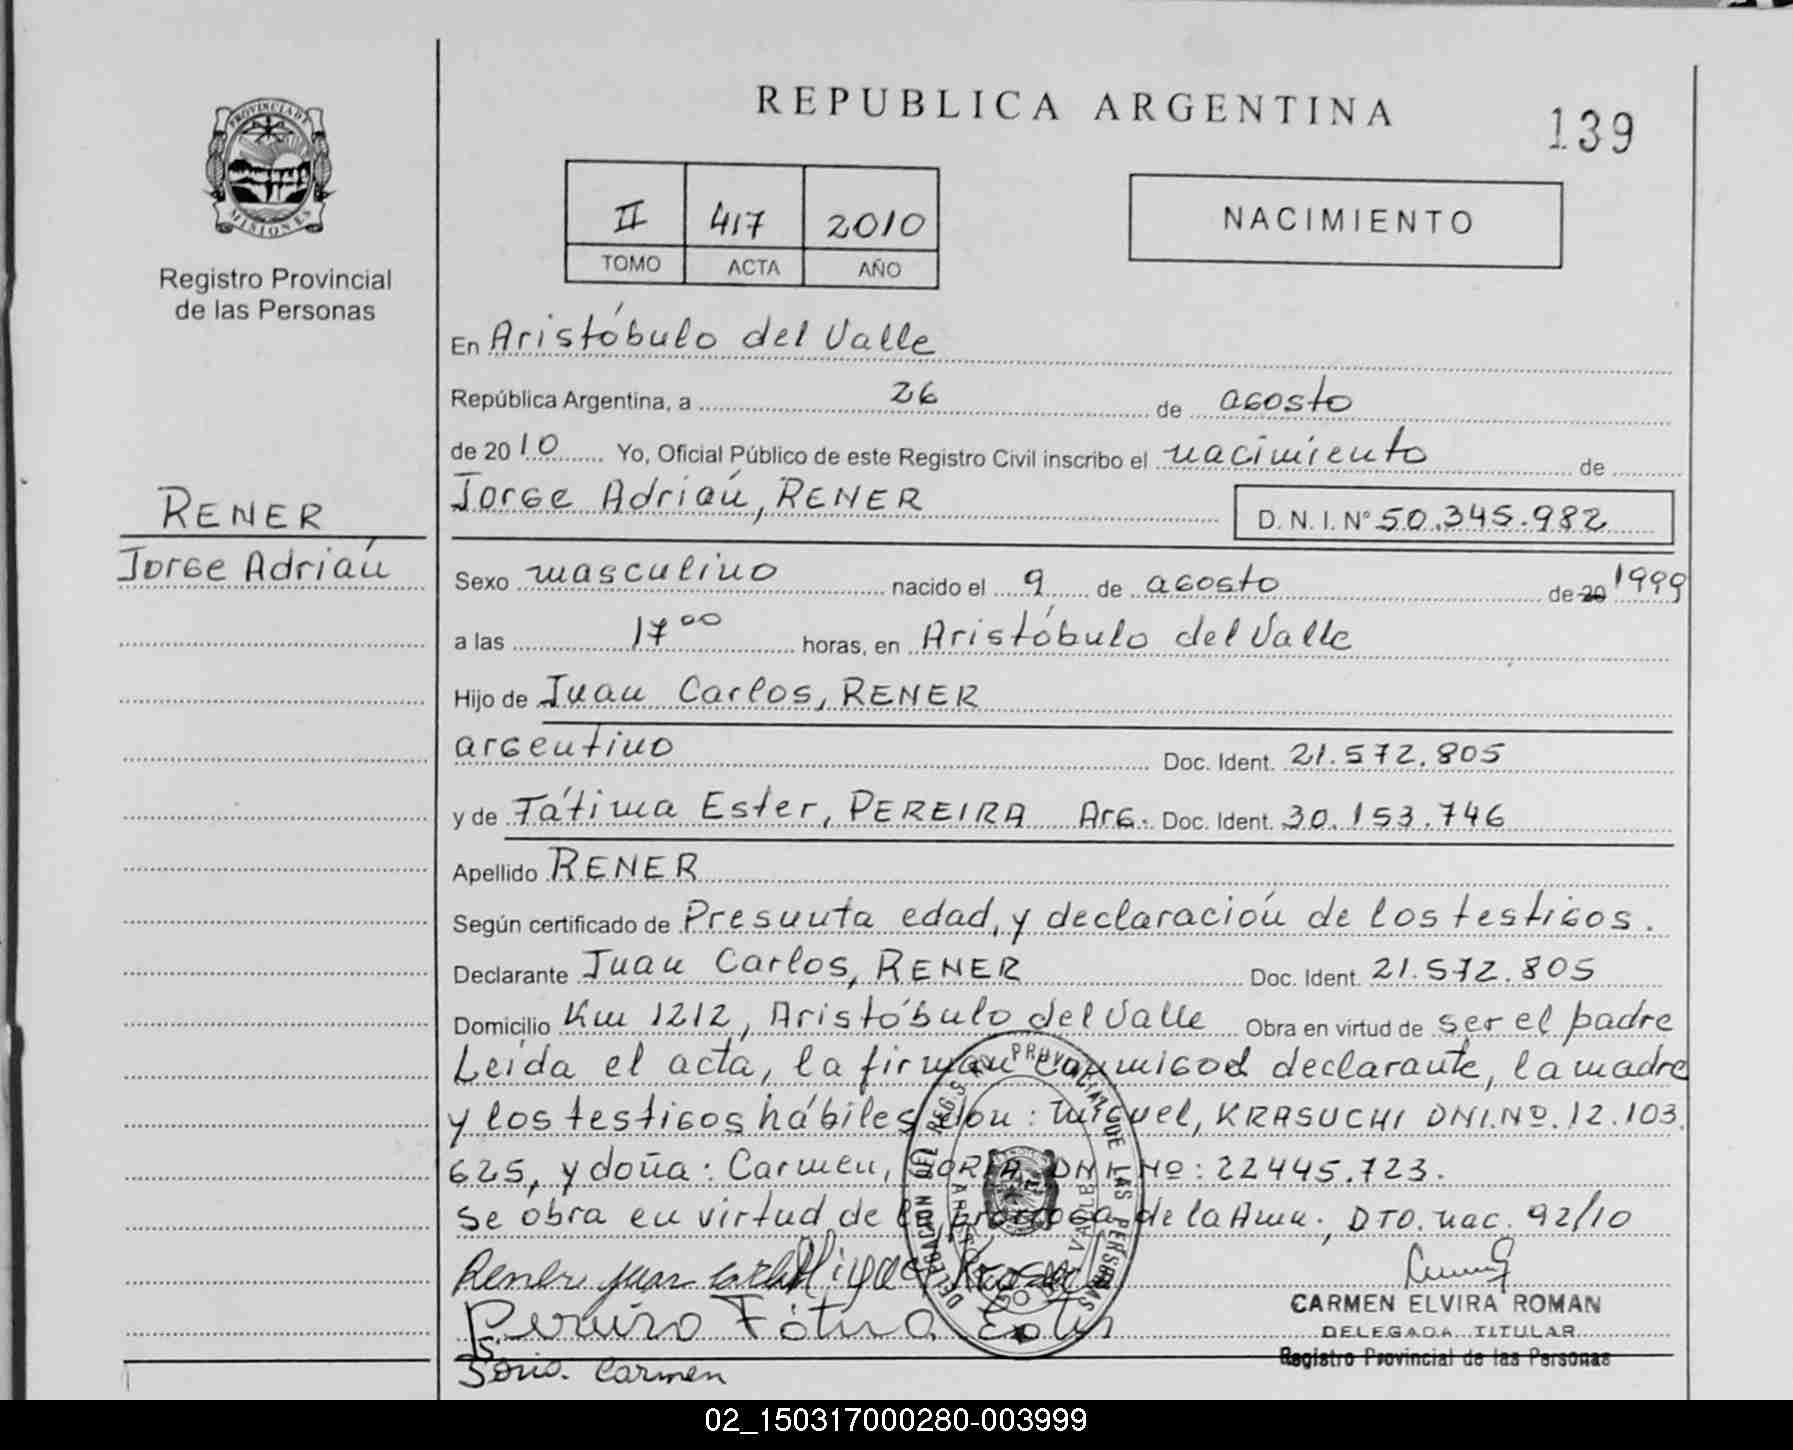 REPUBLICA ARGENTINA
139
PROVINCIA DE
MISIONES
Registro Provincial
de las Personas
II 417 2010
TOMO ACTA AÑO
NACIMIENTO
En Aristóbulo del Valle
República Argentina, a 26 de agosto
de 2010 Yo, Oficial Público de este Registro Civil inscribo el nacimiento de
Jorge Adrián, RENER D. N. I. N° 50.345.982
RENER
Jorge Adrián
Sexo masculino nacido el 9 de agosto de 20 1999
a las 17 00 horas, en Aristóbulo del Valle
Hijo de Juan Carlos, RENER
argentino Doc. Ident. 21.572.805
y de Fátima Ester, PEREIRA Arg. Doc. Ident. 30.153.746
Apellido RENER
Según certificado de Presunta edad, y declaración de los testigos.
Declarante Juan Carlos, RENER Doc. Ident. 21.572.805
Domicilio Km 1212, Aristóbulo del Valle Obra en virtud de ser el padre
Leida el acta, la firman conmigo el declarante, la madre
y los testigos hábiles don: Miguel, KRASUCHI DNI.Nº.12.103.
625, y doña: Carmen, SORIA DNI. Nº: 22445.723.
Se obra en virtud de la prórroga de la Amn. DTO. nac. 92/10
DELEGACION DEL REG. PROVINCIAL DE LAS PERSONAS
VALLE
Rener Juan Miguel
Fátima Ester
CARMEN ELVIRA ROMAN
DELEGADA TITULAR
Registro Provincial de las Personas
Soria. Carmen
02_150317000280-003999